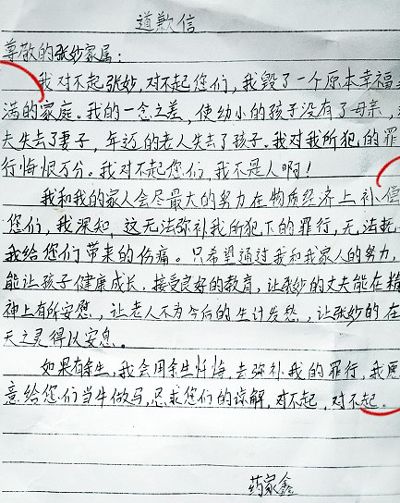 道歉信
尊敬的张妙家属：
我对不起张妙，对不起您们，我毁了一个原本幸福美
满的家庭。我的一念之差，使幼小的孩子没有了母亲，
夫失去了妻子，年迈的老人失去了孩子。我对我所犯的罪
行悔恨万分。我对不起您们，我不是人啊！
我和我的家人会尽最大的努力在物质经济上补偿
您们，我深知，这无法弥补我所犯下的罪行，无法抚
我给您们带来的伤痛。只希望通过我和我家人的努力，
能让孩子健康成长，接受良好的教育，让张妙的丈夫能在精
神上有所安慰，让老人不为今后的生计发愁，让张妙的在
天之灵得以安息。
如果有余生，我会用余生忏悔，去弥补我的罪行，我愿
意给您们当牛做马，恳求您们的谅解，对不起，对不起。
药家鑫